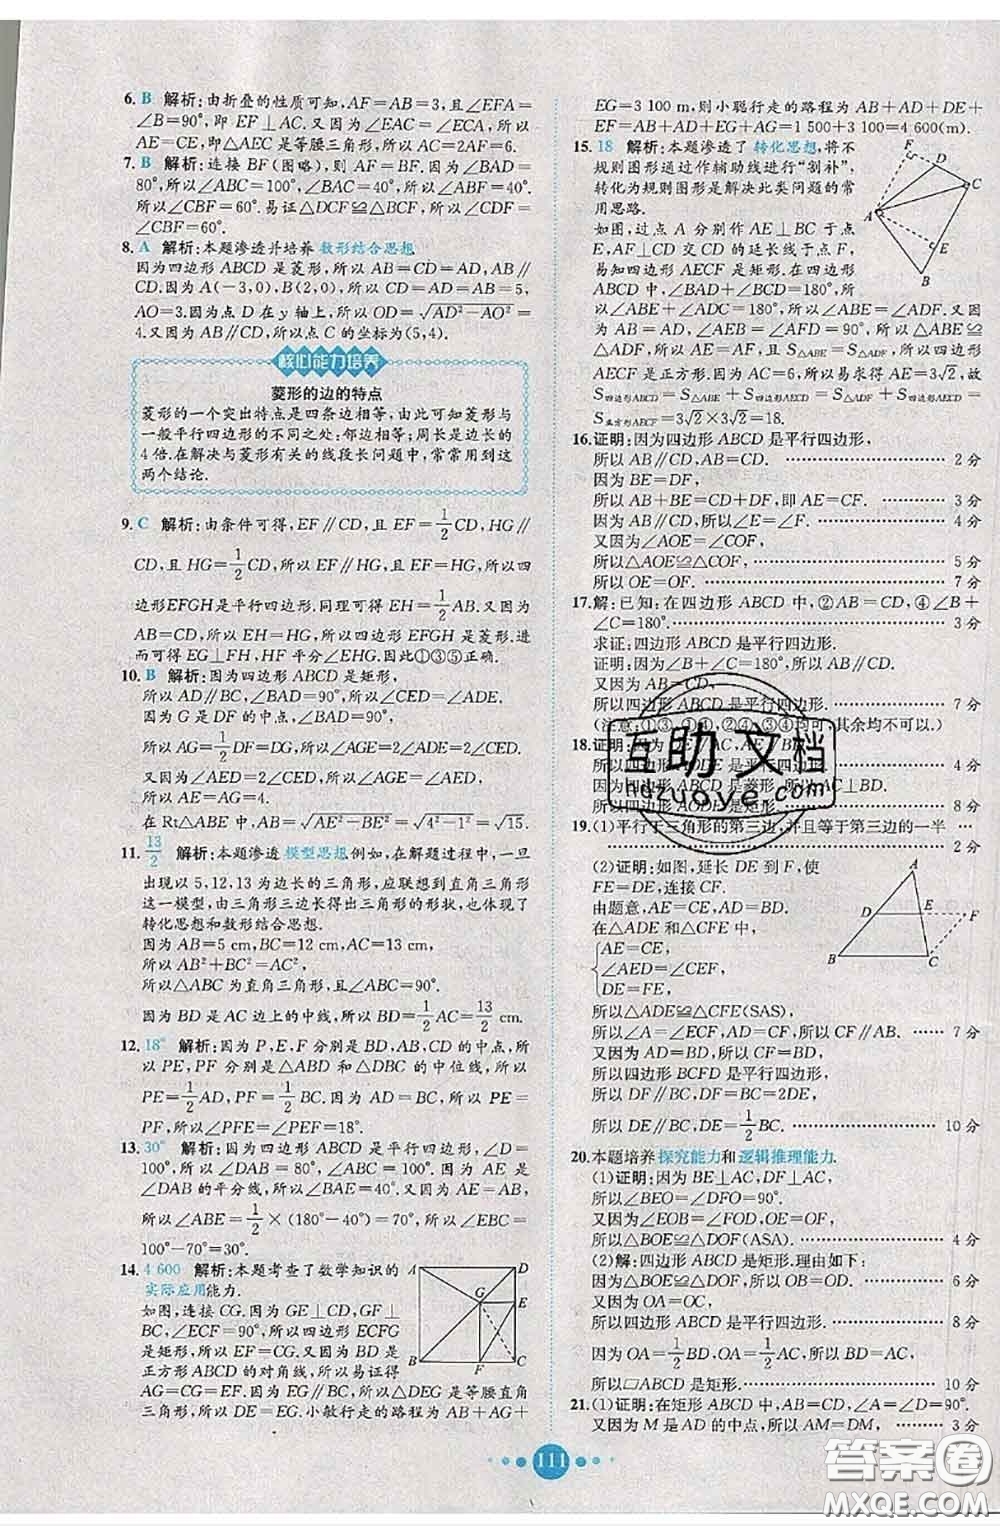 6. B 解析:由折叠的性质可知,AF=AB=3,且∠EFA=
∠B=90°,即 EF⊥AC.又因为∠EAC=∠ECA,所以
AE=CE,即△AEC是等腰三角形,所以AC=2AF=6.
7. B 解析:连接 BF(图略),则 AF=BF.因为∠BAD=
80°,所以∠ABC=100°,∠BAF=∠ABF=40°.
所以∠CBF=60°.易证△DCF≌△BCF,所以∠CDF=
∠CBF=60°.
8. A 解析:本题渗透并培养 数形结合思想
因为四边形 ABCD 是菱形,所以 AB=CD=AD,AB∥
CD.因为A(-3,0),B(2,0),所以 AD=AB=5,
AO=3.因为点 D 在 y 轴上,所以 OD=√(AD²-AO²)=
4.又因为 AB∥CD,所以点 C 的坐标为(5,4).
核心能力培养
菱形的边的特点
菱形的一个突出特点是四条边相等,由此可知菱形与
一般平行四边形的不同之处:邻边相等;周长是边长的
4倍.在解决与菱形有关的线段长问题中,常常用到这
两个结论.
9. C 解析:由条件可得,EF∥CD,且 EF=1/2CD,HG∥
CD,且 HG=1/2CD,所以 EF∥HG,EF=HG,所以四
边形EFGH是平行四边形.同理可得 EH=1/2AB.又因为
AB=CD,所以EH=HG,所以四边形EFGH是菱形.进
而可得EG⊥FH,HF平分∠EHG.因此①③⑤正确.
10. B 解析:因为四边形 ABCD 是矩形,
所以 AD∥BC,∠BAD=90°,所以∠CED=∠ADE.
因为G是DF的中点,∠BAD=90°,
所以AG=1/2DF=DG,所以∠AGE=2∠ADE=2∠CED
又因为∠AED=2∠CED,所以∠AGE=∠AED,
所以AE=AG=4.
在Rt△ABE中,AB=√(AE²-BE²)=√(4²-1²)=√15.
11. 13/2 解析:本题渗透模型思想.例如,在解题过程中,一旦
出现以5,12,13为边长的三角形,应联想到直角三角形
这一模型,由三角形三边长得出三角形的形状,也体现了
转化思想和数形结合思想.
因为 AB=5 cm,BC=12 cm,AC=13 cm,
所以 AB²+BC²=AC²,
所以△ABC为直角三角形,且∠ABC=90°.
因为BD是AC边上的中线,所以BD=1/2AC=13/2 cm.
12. 18° 解析:因为P,E,F分别是BD,AB,CD的中点,所
以PE,PF分别是△ABD和△DBC的中位线,所以
PE=1/2AD,PF=1/2BC.又因为 AD=BC,所以 PE=
PF,所以∠PFE=∠PEF=18°.
13. 30° 解析:因为四边形 ABCD 是平行四边形,∠D=
100°,所以∠DAB=80°,∠ABC=100°.因为 AE 是
∠DAB的平分线,所以∠BAE=40°.又因为AE=AB,
所以∠ABE=1/2×(180°-40°)=70°,所以∠EBC=
100°-70°=30°.
14. 4 600 解析:本题考查了数学知识的
实际应用能力.
如图,连接 CG.因为 GE⊥CD,GF⊥
BC,∠FCE=90°,所以四边形 ECFG
是矩形,所以EF=CG.又因为BD是
正方形ABCD的对角线,所以易证得
AG=CG=EF.因为∠BDC=45°,所以△DEG是等腰直角三角形,
所以DE=GE.小敏行走的路程为AB+AG+
A D G E B F C
EG=3 100 m,则小聪行走的路程为 AB+AD+DE+
EF=AB+AD+EG+AG=1 500+3 100=4 600(m).
15. 18 解析:本题渗透了转化思想,将不
规则图形通过作辅助线进行“割补”,
转化为规则图形是解决此类问题的常
用思路.
如图,过点 A 分别作 AE⊥BC 于点
E,AF⊥CD 交 CD 的延长线于点 F,
易知四边形 AECF 是矩形.在四边形
ABCD中,∠B+∠ADC=180°,所
以∠ADF+∠ADC=180°,所以∠ABE=∠ADF.又因为
AB=AD,∠AEB=∠AFD=90°,所以△ABE≌
△ADF,所以AE=AF,且S△ABE=S△ADF,所以四边形
AECF是正方形.因为AC=6,所以AE=AF=3√2,故
S四边形ABCD=S△ABE+S四边形AECD=S△ADF+S四边形AECD=
S正方形AECF=3√2×3√2=18.
F D C A E B
16. 证明:因为四边形 ABCD 是平行四边形,
所以 AB∥CD,AB=CD. 2分
因为 BE=DF,
所以 AB+BE=CD+DF,即 AE=CF. 3分
因为 AB∥CD,所以∠E=∠F. 4分
又因为∠AOE=∠COF,
所以△AOE≌△COF, 5分
所以 OE=OF. 7分
17. 解:已知:在四边形ABCD中,②AB=CD,④∠B+
∠C=180°. 3分
求证:四边形ABCD是平行四边形.
证明:因为∠B+∠C=180°,所以AB∥CD.
又因为 AB=CD,
所以四边形ABCD是平行四边形. 7分
(注意:①③,①④,②④,③④均可,其余均不可以.)
18. 证明:因为
所以四边形AODE是平行四边形. 4分
因为四边形ABCD是菱形,所以AC⊥BD,
所以四边形AODE是矩形. 8分
19. (1)平行于三角形的第三边,并且等于第三边的一半
2分
(2)证明:如图,延长 DE 到 F,使
FE=DE,连接 CF.
由题意,EA=EC,AD=BD.
在△ADE 和△CFE 中,
AE=CE,
∠AED=∠CEF,
DE=FE,
所以△ADE≌△CFE(SAS),
所以∠A=∠ECF,AD=CF,所以CF∥AB. 7分
又因为 AD=BD,所以 CF=BD.
所以四边形 BCFD 是平行四边形,
所以 DF∥BC,DF=BC=2DE,
所以 DE∥BC,DE=1/2BC. 10分
A D E F B C
20. 本题培养探究能力和逻辑推理能力.
(1)证明:因为BE⊥AC,DF⊥AC,
所以∠BEO=∠DFO=90°.
又因为∠EOB=∠FOD,OE=OF,
所以△BOE≌△DOF(ASA). 4分
(2)解:四边形 ABCD 是矩形.理由如下:
因为△BOE≌△DOF,所以OB=OD. 6分
又因为 OA=OC,
所以四边形ABCD是平行四边形. 8分
因为 OA=1/2BD,OA=1/2AC,所以BD=AC,
所以□ABCD是矩形. 10分
21. (1)证明:在矩形ABCD中,AB=CD,∠A=∠D=90°.
又因为M是AD的中点,所以AM=DM, 3分
互助文档
hazuoye.com
111
答案圈
MXQE.COM